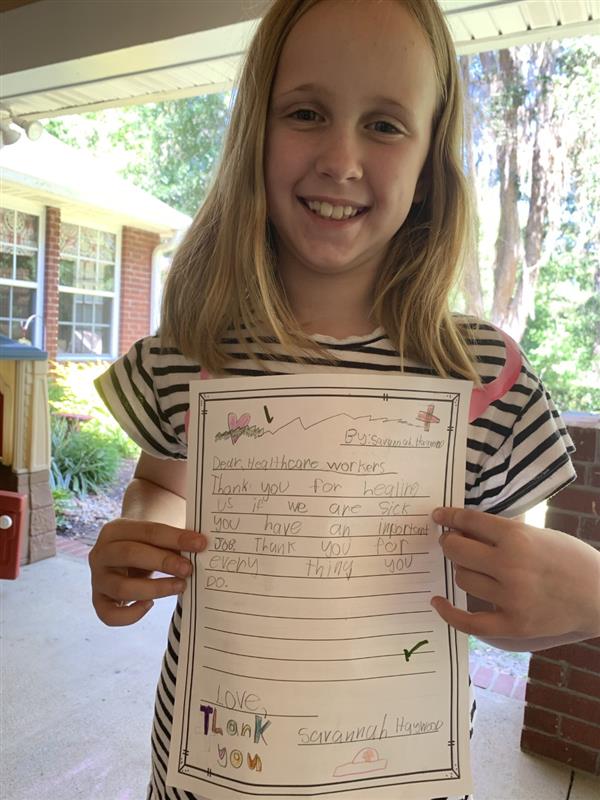 By: Savannah Haywood
Dear, Healthcare workers
Thank you for healing
us if we are sick
you have an important
Job. Thank you for
every thing you
DO.
Love,
Thank
you
Savannah Haywood